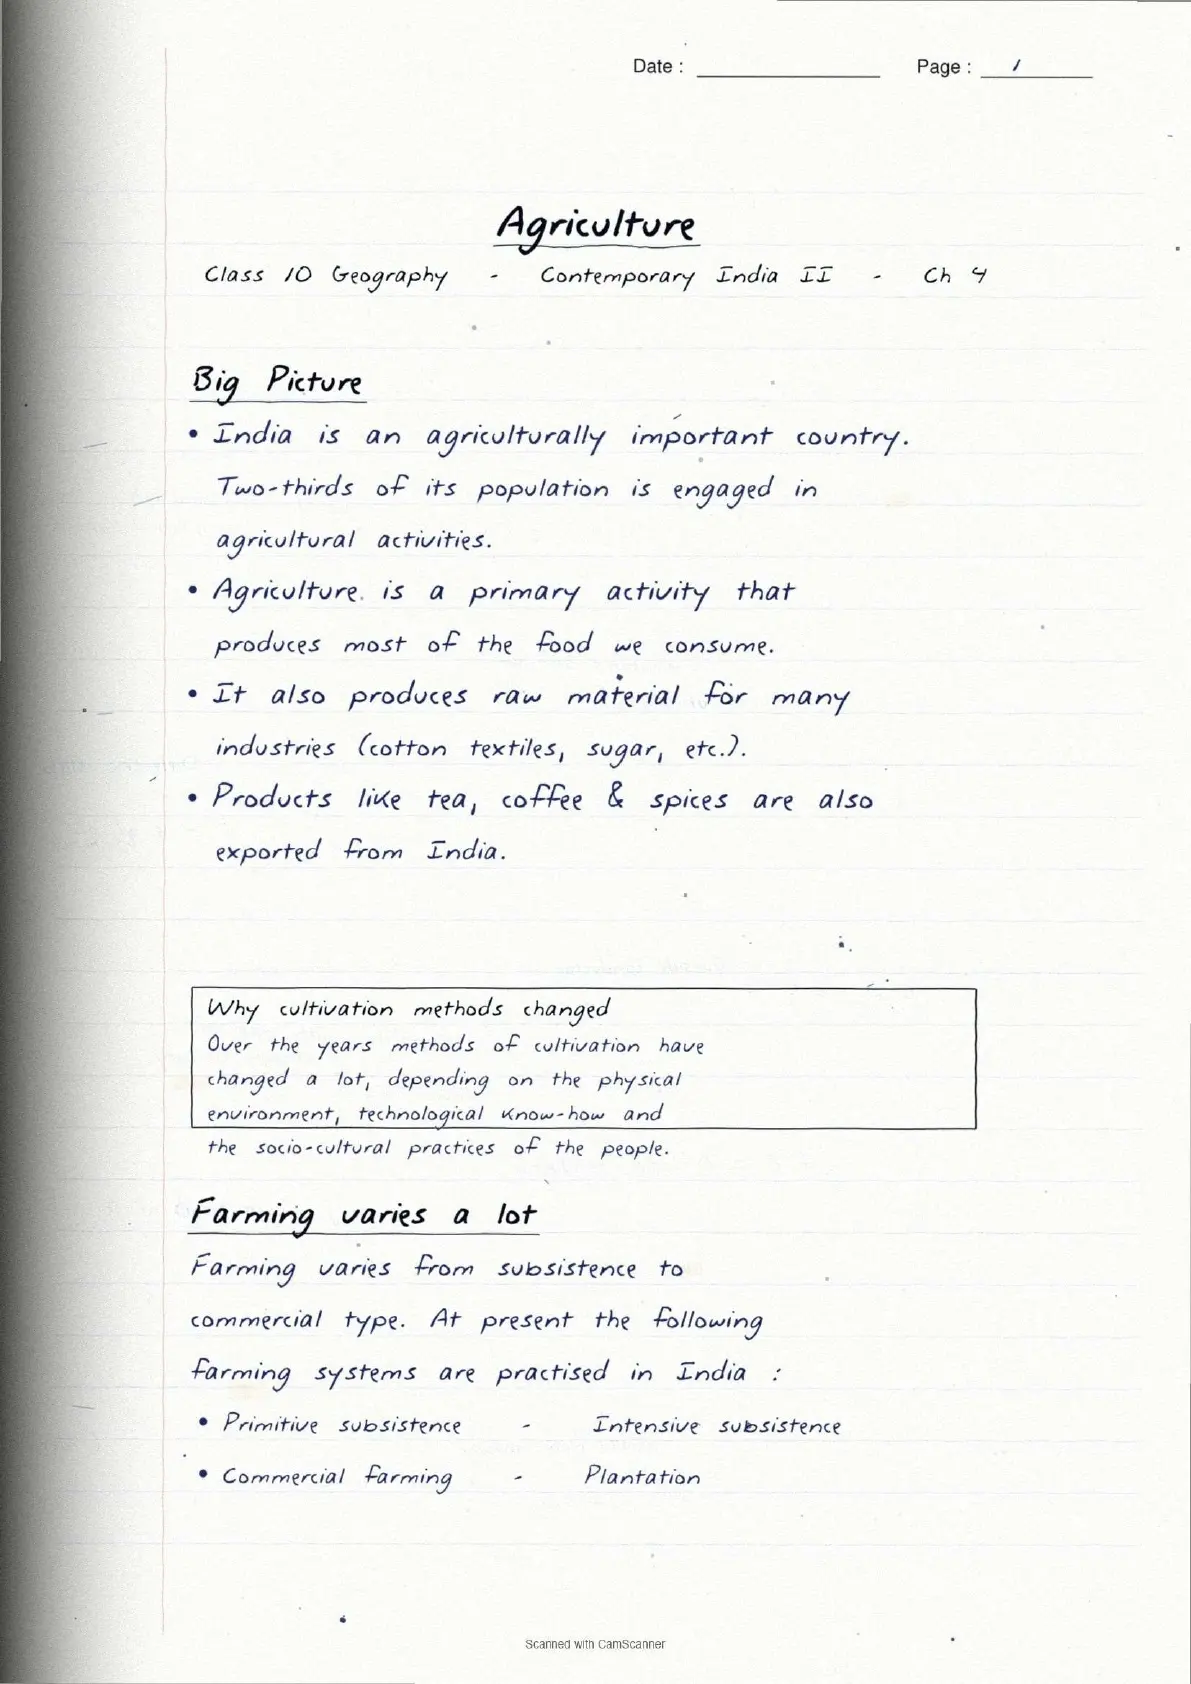 Date : Page : 1
Agriculture
Class 10 Geography - Contemporary India II - Ch 4
Big Picture
• India is an agriculturally important country.
Two-thirds of its population is engaged in
agricultural activities.
• Agriculture is a primary activity that
produces most of the food we consume.
• It also produces raw material for many
industries (cotton textiles, sugar, etc.).
• Products like tea, coffee & spices are also
exported from India.
Why cultivation methods changed
Over the years methods of cultivation have
changed a lot, depending on the physical
environment, technological know-how and
the socio-cultural practices of the people.
Farming varies a lot
Farming varies from subsistence to
commercial type. At present the following
farming systems are practised in India :
• Primitive subsistence - Intensive subsistence
• Commercial farming - Plantation
Scanned with CamScanner